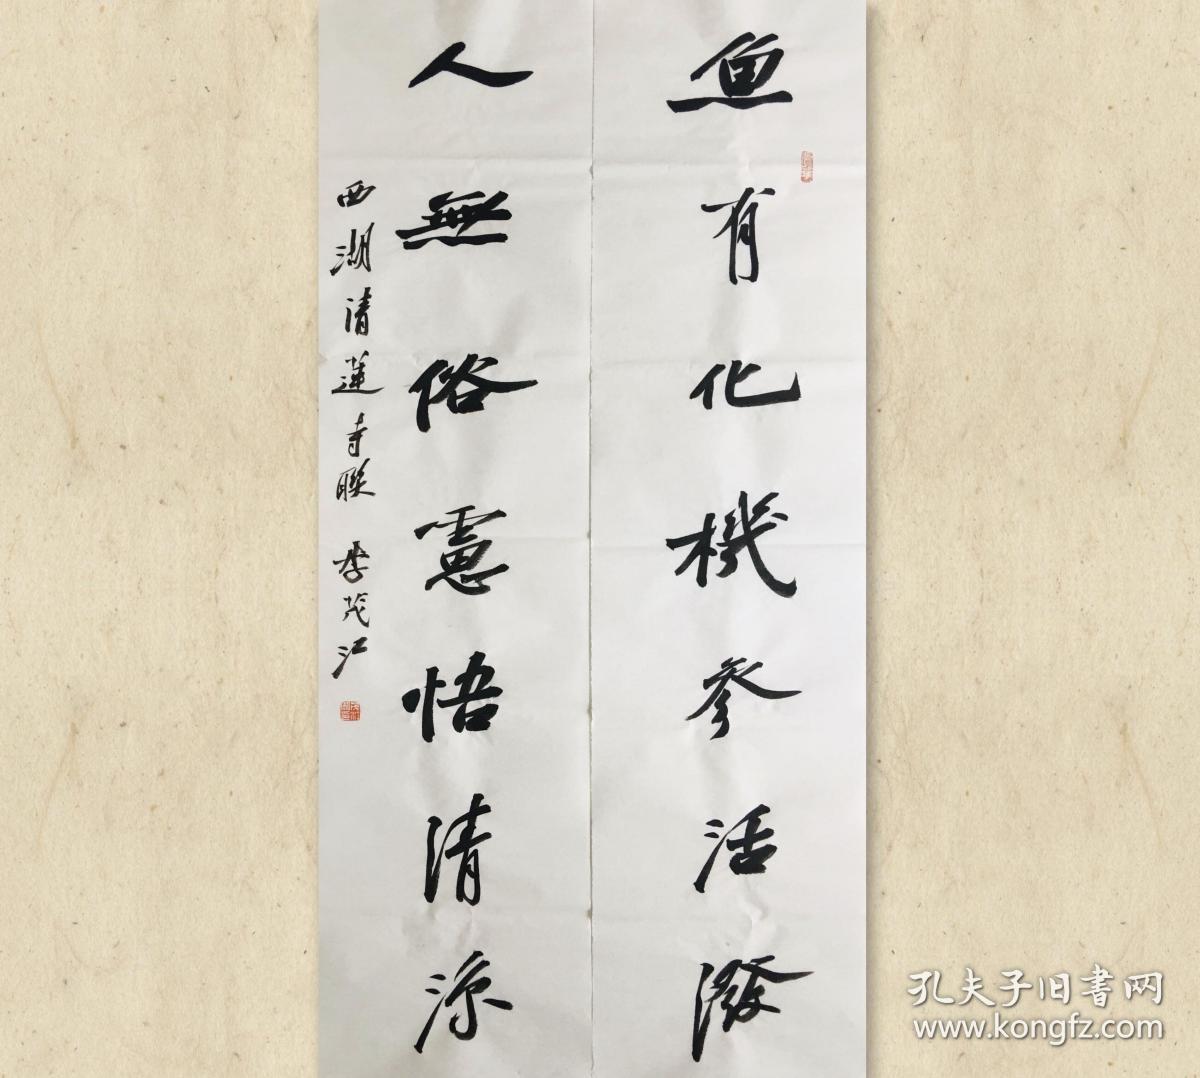 鱼有化機參活潑
人無俗慮悟清涼
西湖清蓮寺聯 李茂江
孔夫子旧書网
www.kongfz.com